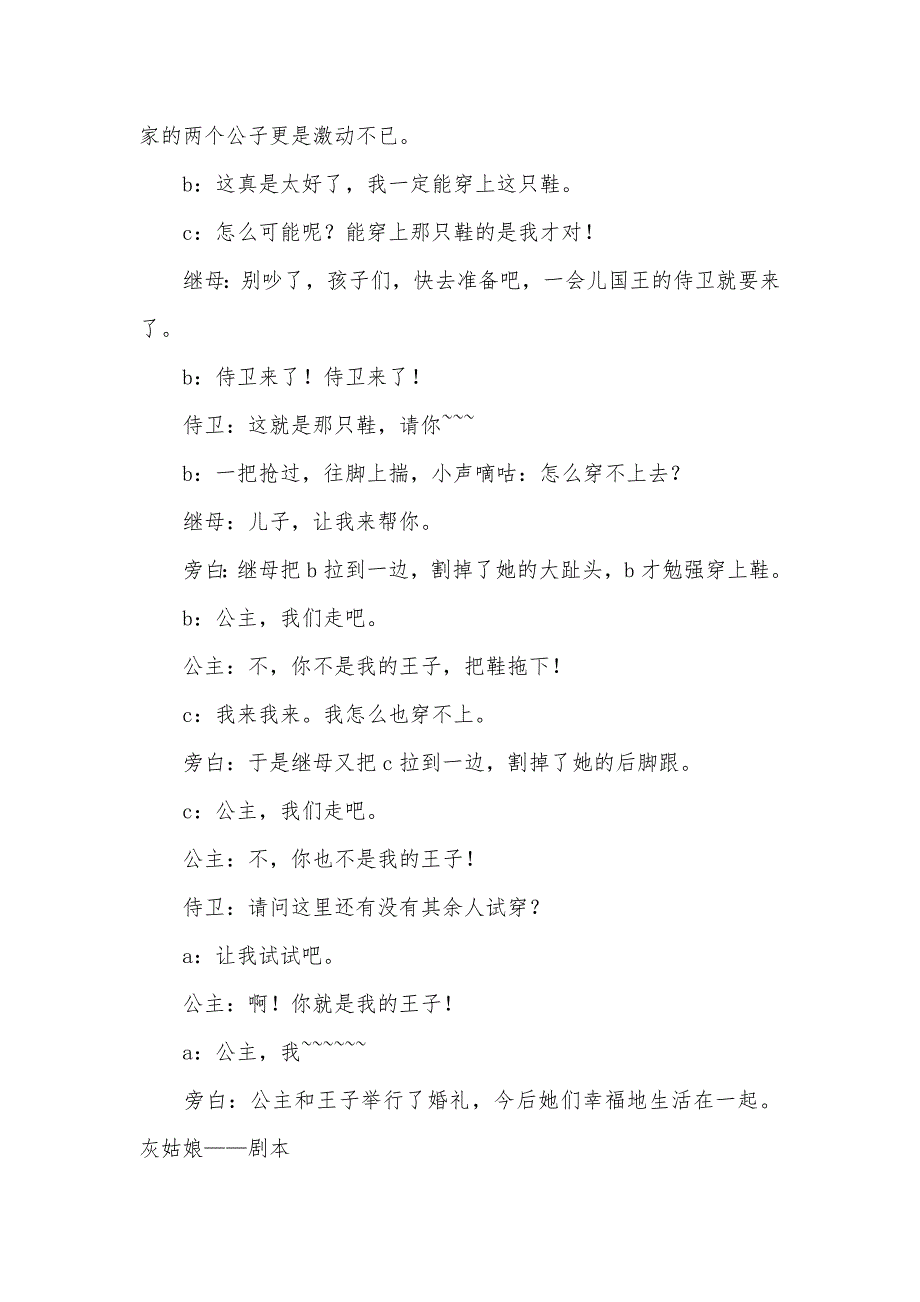 家的两个公子更是激动不已。
b：这真是太好了，我一定能穿上这只鞋。
c：怎么可能呢？能穿上那只鞋的是我才对！
继母：别吵了，孩子们，快去准备吧，一会儿国王的侍卫就要来
了。
b：侍卫来了！侍卫来了！
侍卫：这就是那只鞋，请你~~~
b：一把抢过，往脚上揣，小声嘀咕：怎么穿不上去？
继母：儿子，让我来帮你。
旁白：继母把b拉到一边，割掉了她的大趾头，b才勉强穿上鞋。
b：公主，我们走吧。
公主：不，你不是我的王子，把鞋拖下！
c：我来我来。我怎么也穿不上。
旁白：于是继母又把c拉到一边，割掉了她的后脚跟。
c：公主，我们走吧。
公主：不，你也不是我的王子！
侍卫：请问这里还有没有其余人试穿？
a：让我试试吧。
公主：啊！你就是我的王子！
a：公主，我~~~~~~
旁白：公主和王子举行了婚礼，今后她们幸福地生活在一起。
灰姑娘——剧本